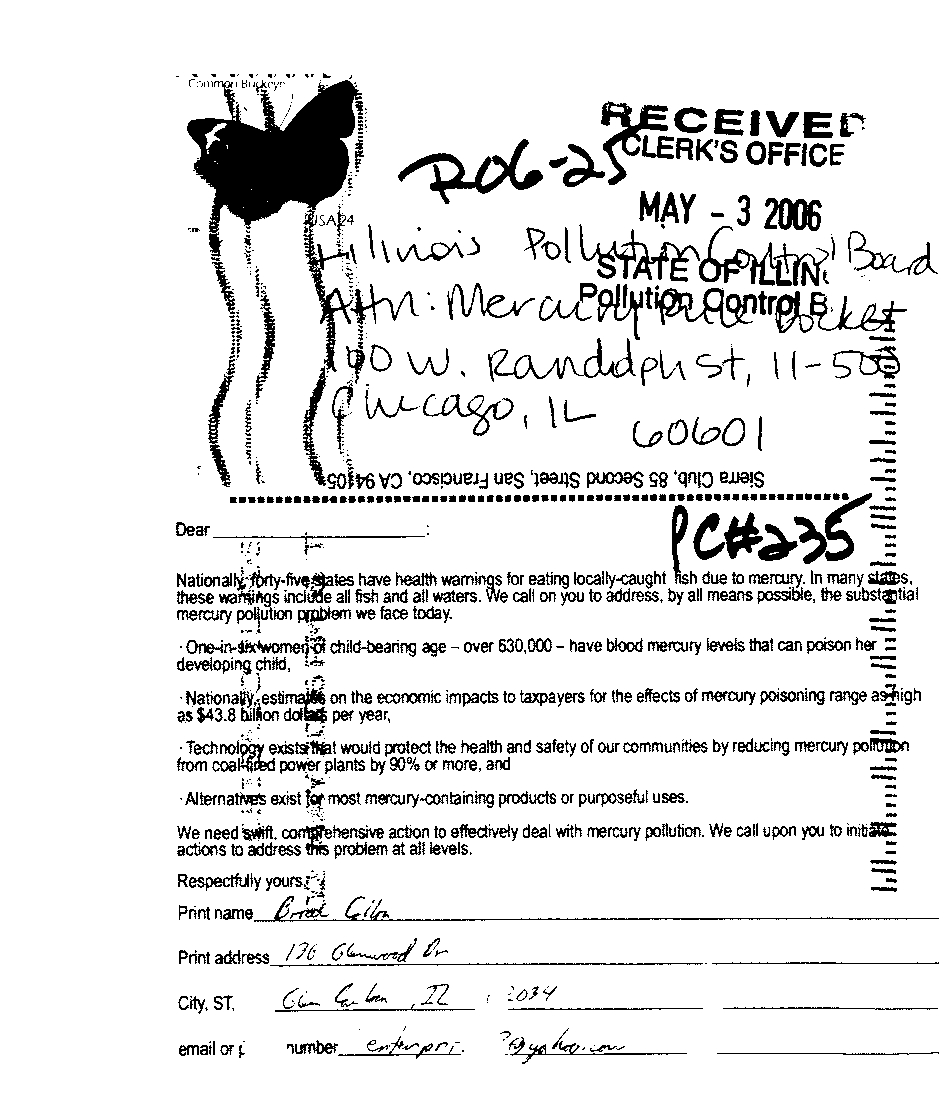 Common Buckeye
USA24
RECEIVED
CLERK'S OFFICE
R06-25
MAY - 3 2006
STATE OF ILLIN
Pollution Control B
Illinois Pollution Control Board
Attn: Mercury Rule Docket
100 W. Randolph St, 11-500
Chicago, IL
60601
Sierra Club, 85 Second Street, San Francisco, CA 94105
PC#235
Dear :
Nationally, forty-five states have health warnings for eating locally-caught fish due to mercury. In many states,
these warnings include all fish and all waters. We call on you to address, by all means possible, the substantial
mercury pollution problem we face today.
· One-in-six women of child-bearing age – over 630,000 – have blood mercury levels that can poison her
developing child,
· Nationally, estimates on the economic impacts to taxpayers for the effects of mercury poisoning range as high
as $43.8 billion dollars per year,
· Technology exists that would protect the health and safety of our communities by reducing mercury pollution
from coal-fired power plants by 90% or more, and
· Alternatives exist for most mercury-containing products or purposeful uses.
We need swift, comprehensive action to effectively deal with mercury pollution. We call upon you to initiate
actions to address this problem at all levels.
Respectfully yours,
Print name Brad
Print address 136 Glenwood Dr
City, ST, Glen Carbon, IL 2034
email or p number @yahoo.com